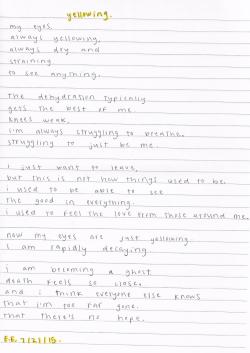 yellowing.
my eyes,
always yellowing,
always dry and
straining
to see anything.
the dehydration typically
gets the best of me.
knees weak,
i'm always struggling to breathe,
struggling to just be me.
i just want to leave,
but this is not how things used to be.
i used to be able to see
the good in everything.
i used to feel the love from those around me.
now my eyes are just yellowing.
i am rapidly decaying.
i am becoming a ghost
death feels so close,
and i think everyone else knows
that i'm too far gone.
that there's no hope.
E.E. 7/21/15.